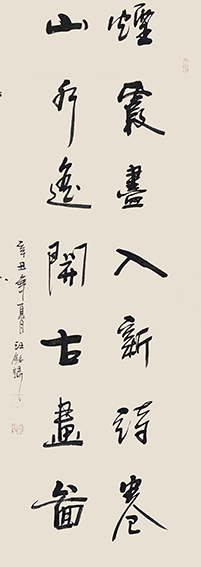 煙霞盡入新詩卷
山外遙開古畫圖
辛丑年夏月